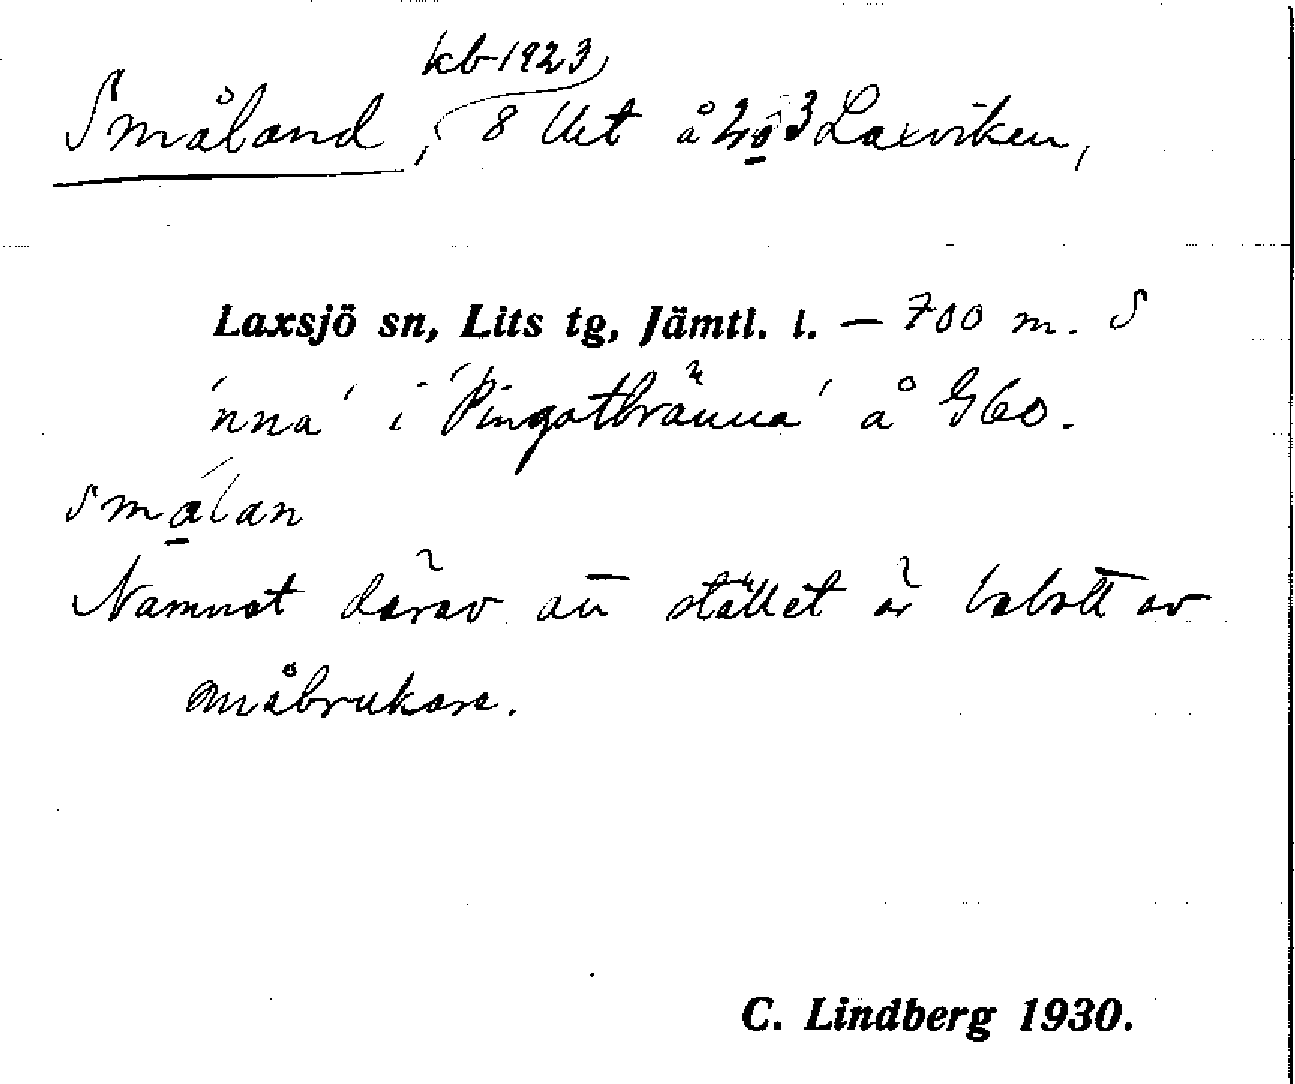 kb 1923
Småland, 8 lht å 2o3 Laxviken,
Laxsjö sn, Lits tg, Jämtl. l. — 700 m. S
'nna' i 'Pingstbränna' å G60.
smálan
Namnet därav att stället är bebott av
småbrukare.
C. Lindberg 1930.